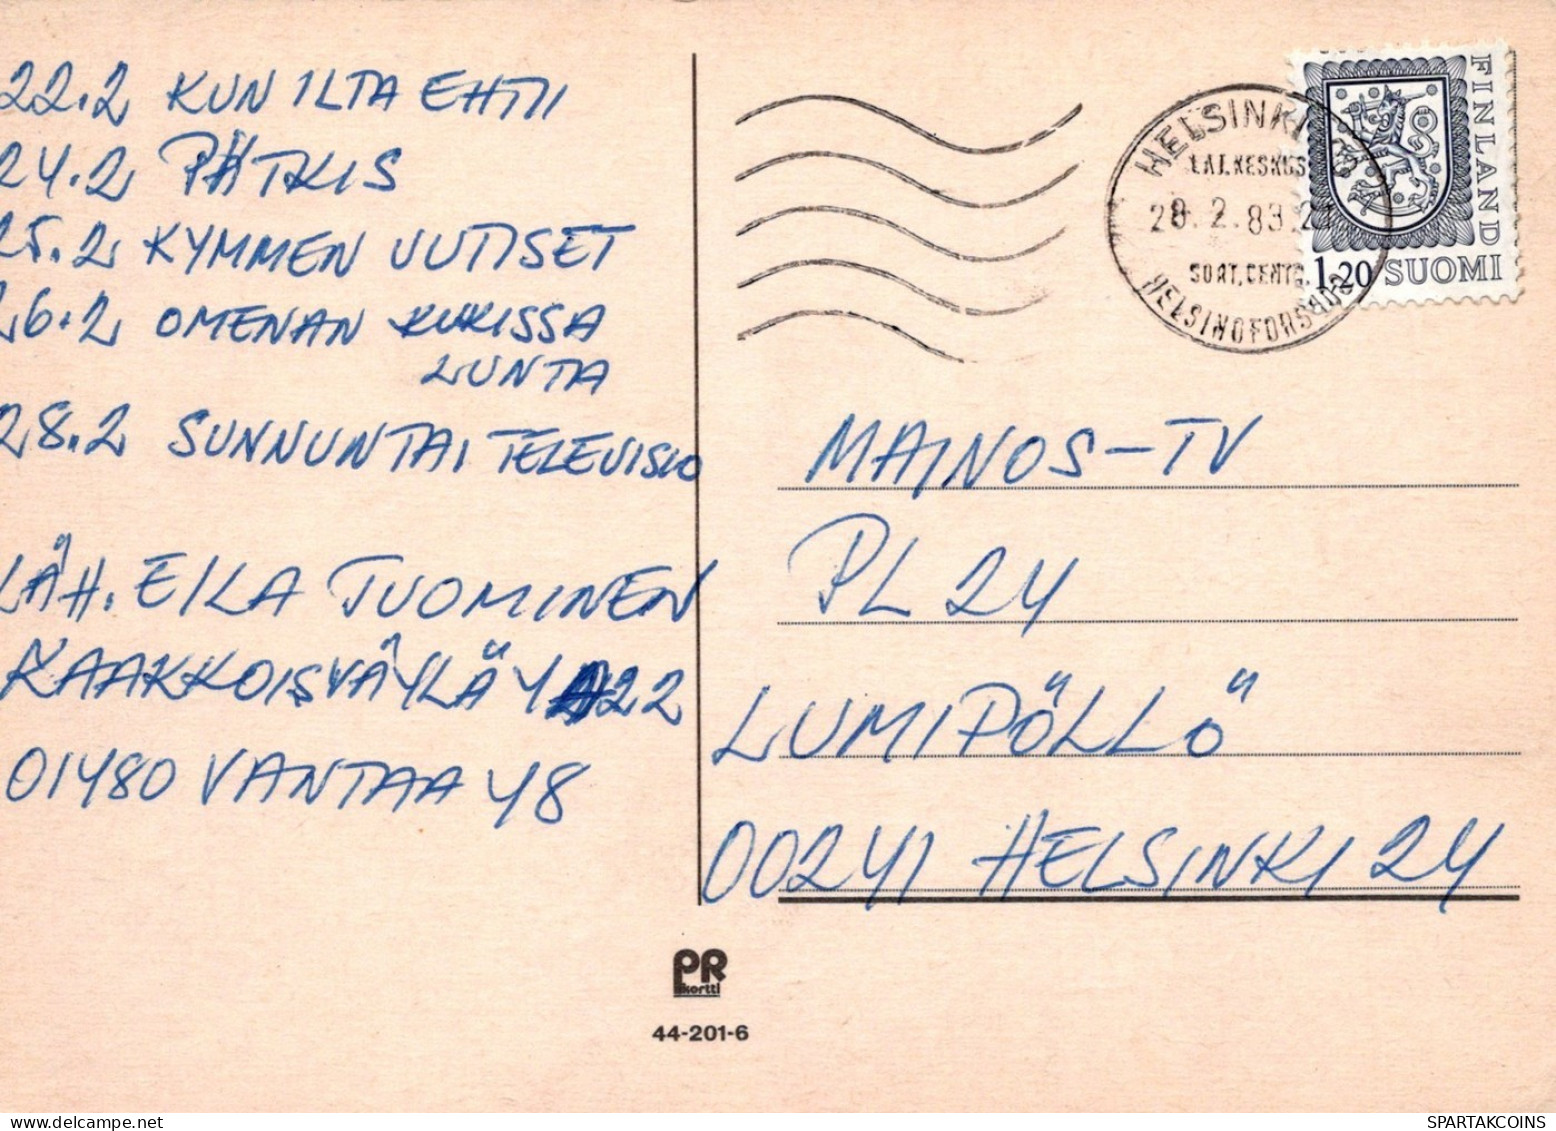 22.2 KUN ILTA EHTII
24.2 PÄTKIS
25.2 KYMMEN UUTISET
26.2 OMENAN KUKISSA
LUNTA
28.2 SUNNUNTAI TELEVISIO
LÄH. EILA TUOMINEN
KAAKKOISVÄYLÄ 4 A 22
01480 VANTAA 48
HELSINKI
LAJ.KESKUS
28.2.83.21
SORT.CENTR.
HELSINGFORS
FINLAND
1,20 SUOMI
MAINOS-TV
PL 24
LUMIPÖLLÖ
00241 HELSINKI 24
PR
kortti
44-201-6
SPARTAKCOINS